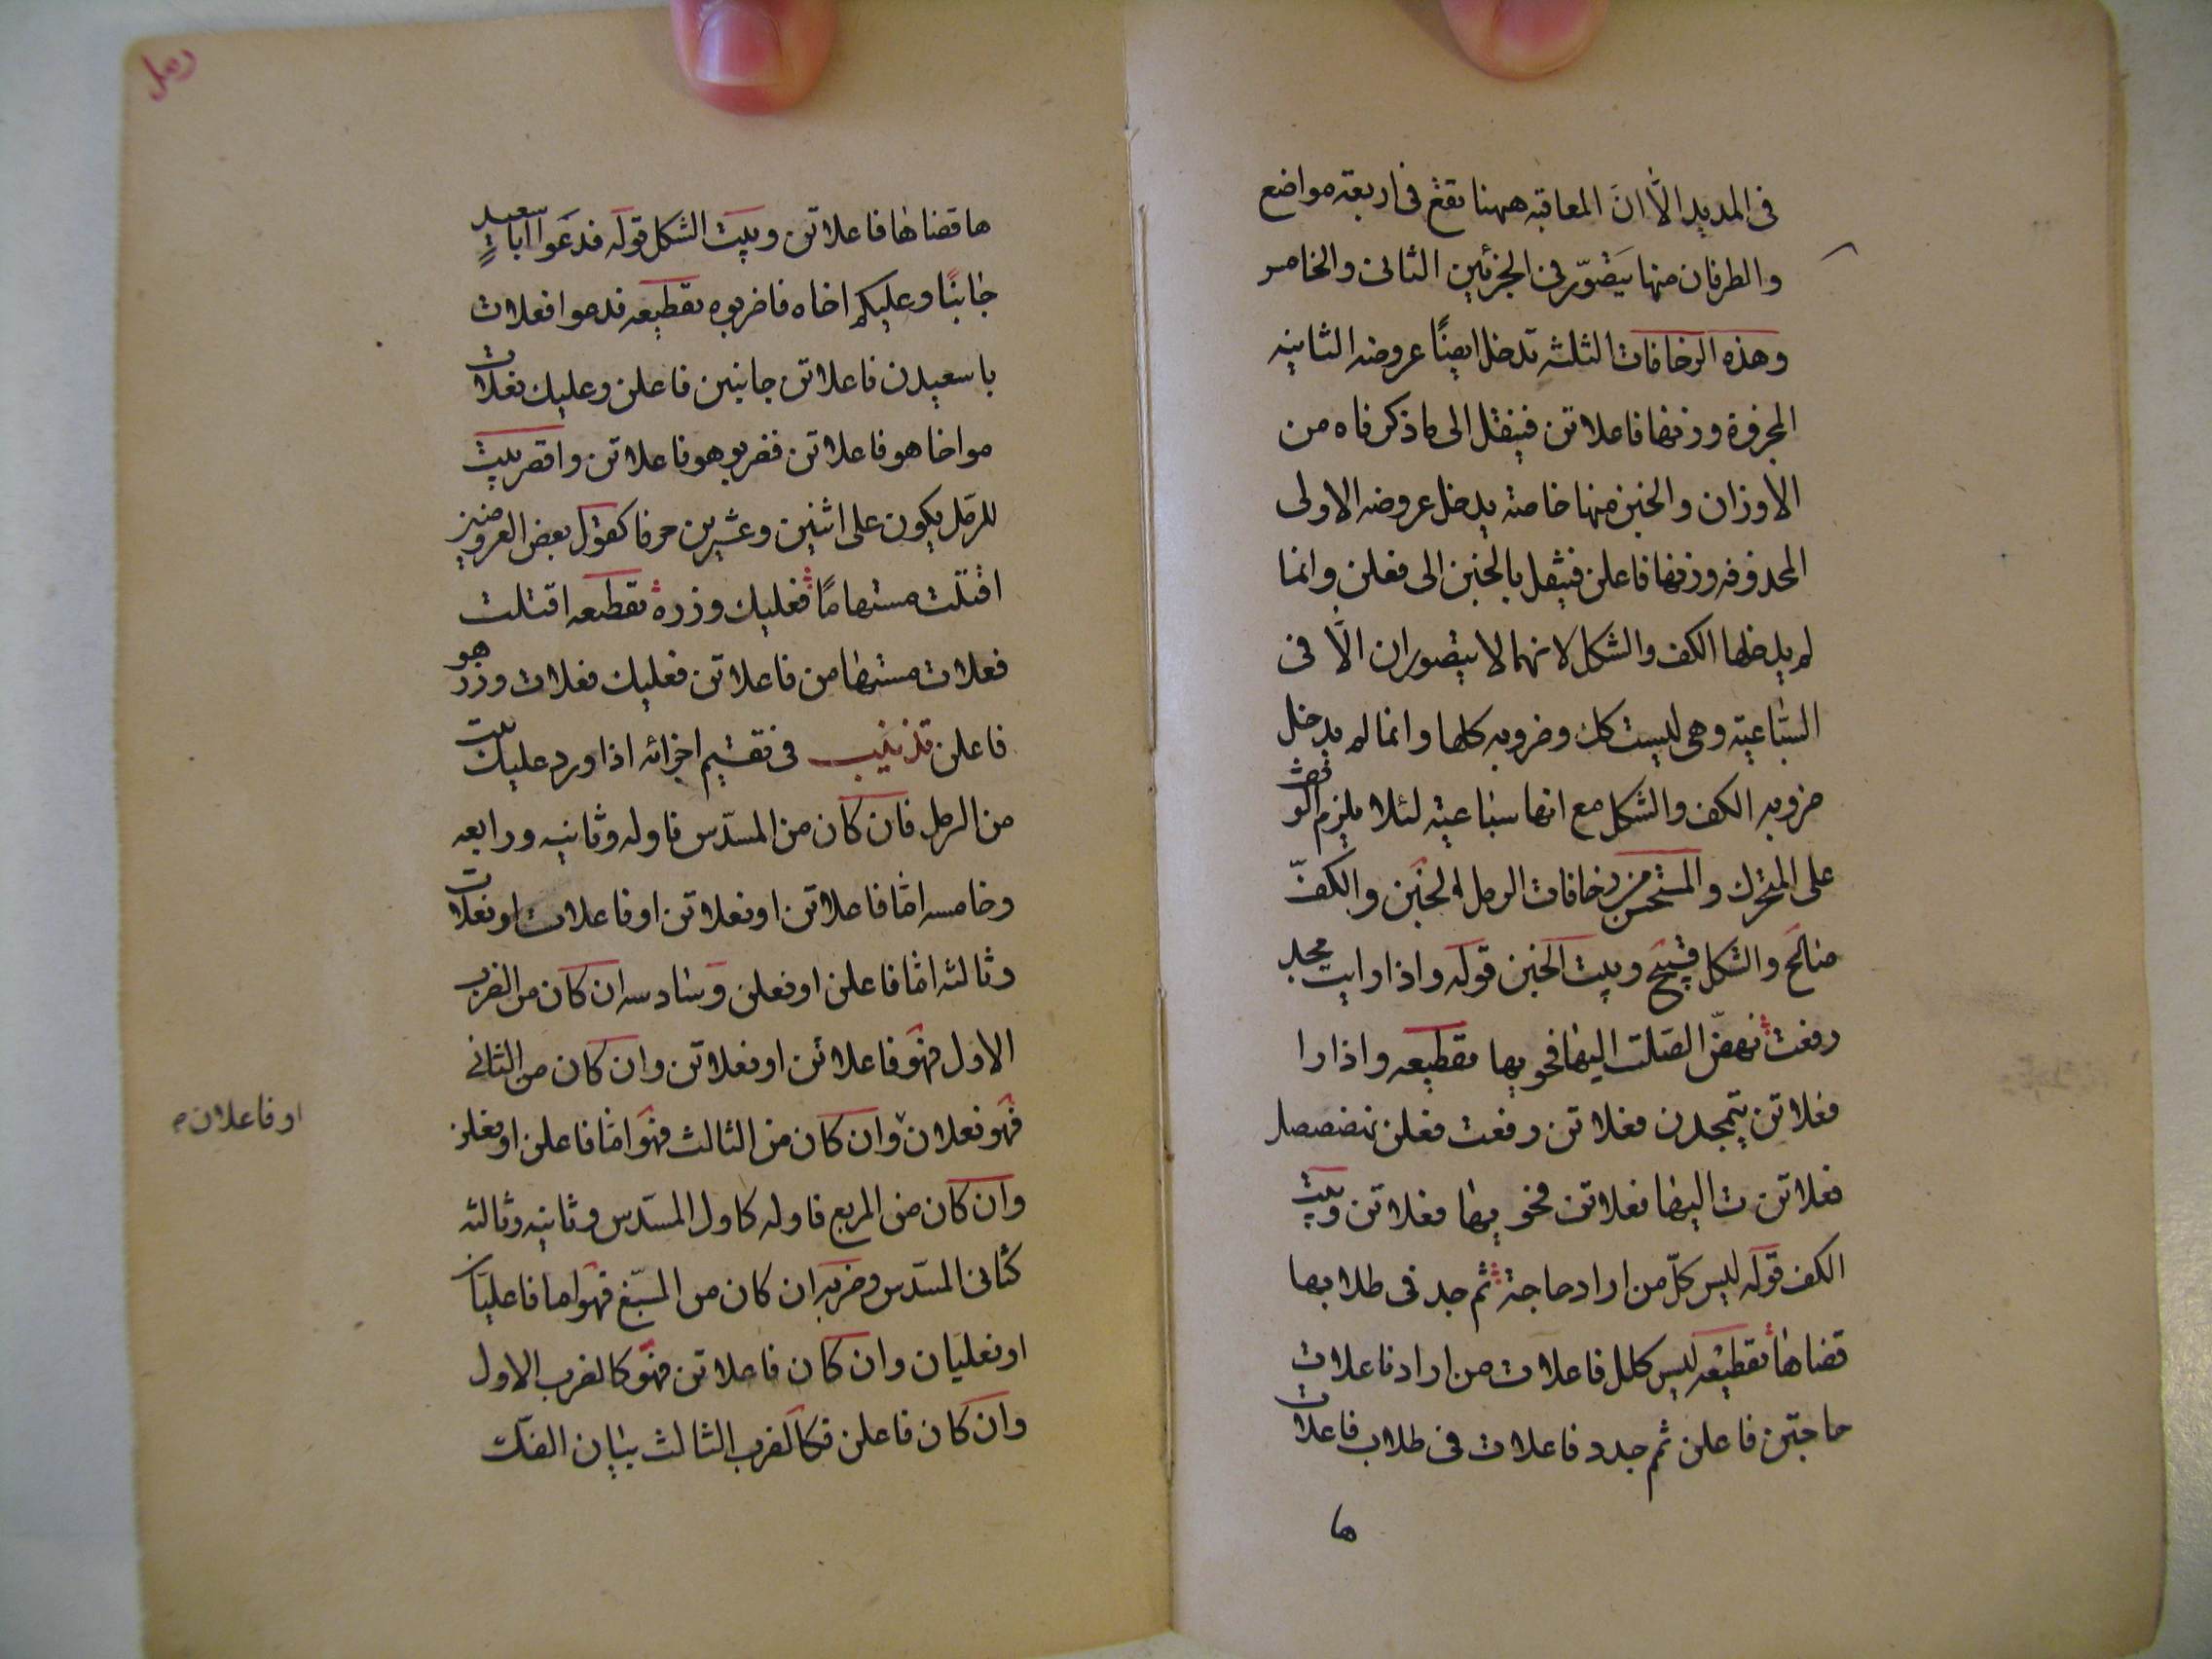 فى المديد الّا انّ المعاقبة ههنا تقع فى اربعة مواضع
والطرفان منها يتصوّر فى الجزئين الثانى والخامس
وهذه الزحافات الثلثه تدخل ايضًا عروضه الثانيه
المجزوة ووزنها فاعلاتن فينقل الى ما ذكرناه من
الاوزان والخبن منها خاصة يدخل عروضه الاولى
المحذوفه ووزنها فاعلن فينقل بالخبن الى فعلن وانما
لم يدخلها الكف والشكل لانهما لا يتصوران الّا فى
السباعية وهى ليست كك وضروبه كلها وانما لم يدخل
ضروبه الكف والشكل مع انها سباعية لئلا يلزم الوقف
على المتحرك والمستحسن من زحافات الرمل الخبن والكفّ
صالح والشكل قبيح وبيت الخبن قوله واذا رايت مجد
رفعت نهض الصلت اليها فحويها تقطيعه واذا را
فعلاتن يتمجدن فعلاتن رفعت فعلن نهضصصل
فعلاتن ت اليها فعلاتن فحويها فعلاتن وبيت
الكف قوله ليس كلّ من اراد حاجة ثم جد فى طلابها
قضاها تقطيعه ليس كلل فاعلات من اراد فاعلات
حاجتن فاعلن ثم جدد فاعلات فى طلاب فاعلات
ها
رمل
ها قضاها فاعلاتن وبيت الشكل قوله فدعوا ابا سعيدٍ
جانبًا وعليكم اخاه فاضربوه تقطيعه فدعوا فعلات
با سعيدن فاعلاتن جانبن فاعلن وعليك فعلات
مو اخاهو فاعلاتن فضربوهو فاعلاتن واقصر بيت
للرمل يكون على اثنين وعشرين حرفا كقول بعض العروضيين
اقتلت مستهامًا فعليك وزره تقطيعه اقتلت
فعلات مستهامن فاعلاتن فعليك فعلات وزرهو
فاعلن تذنيب فى تقسيم اجزائه اذا ورد عليك بيت
من الرمل فان كان من المسدّس فاوله وثانيه ورابعه
وخامسه امّا فاعلاتن او فعلاتن او فاعلات او فعلات
وثالثه امّا فاعلن او فعلن وسادسه ان كان من الضرب
الاول فهو فاعلاتن او فعلاتن وان كان من الثانى
فهو فعلان وان كان من الثالث فهو امّا فاعلن او فعلن
او فاعلان
وان كان من المربع فاوله كاول المسدّس وثانيه وثالثه
كثانى المسدّس وضربه ان كان من المسبّغ فهو اما فاعليّان
او فعليان وان كان فاعلاتن فهو كالضرب الاول
وان كان فاعلن فكالضرب الثالث بيان الفك